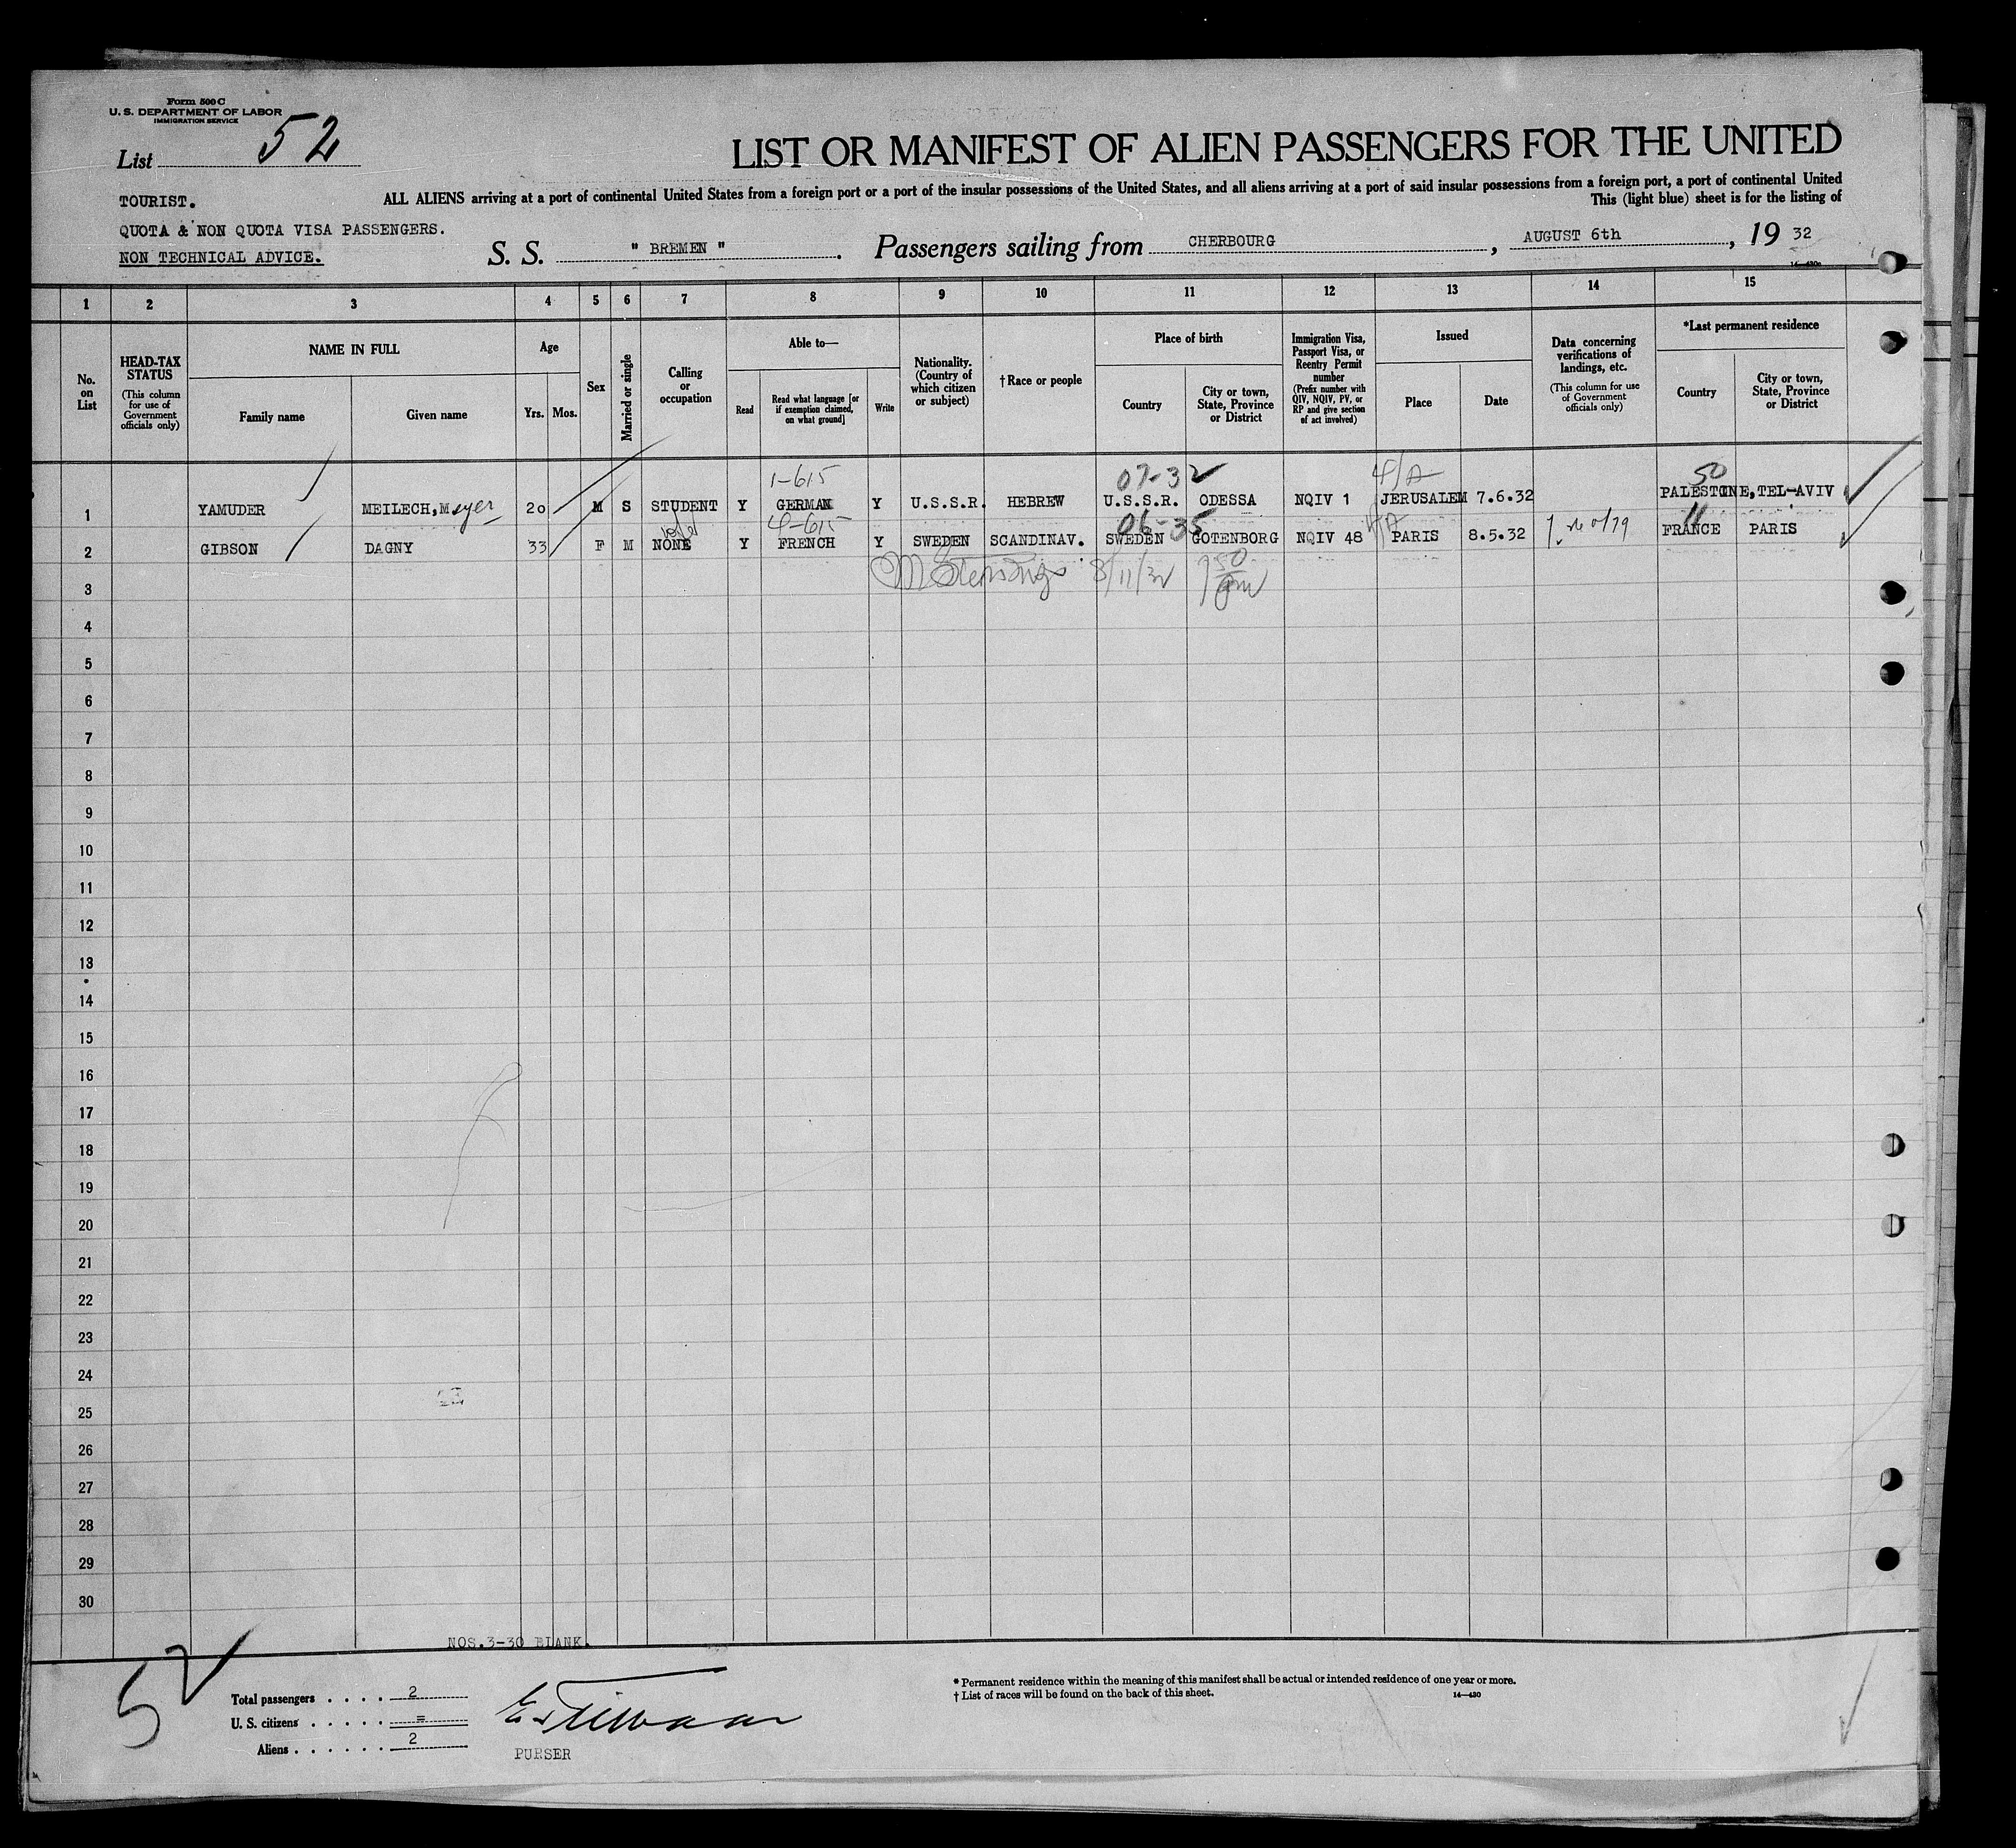 Form 500 C
U. S. DEPARTMENT OF LABOR
IMMIGRATION SERVICE
List 52
LIST OR MANIFEST OF ALIEN PASSENGERS FOR THE UNITED
ALL ALIENS arriving at a port of continental United States from a foreign port or a port of the insular possessions of the United States, and all aliens arriving at a port of said insular possessions from a foreign port, a port of continental United
This (light blue) sheet is for the listing of
TOURIST.
QUOTA & NON QUOTA VISA PASSENGERS.
NON TECHNICAL ADVICE.
S. S. " BREMEN ". Passengers sailing from CHERBOURG, AUGUST 6th, 19 32
14—430c
1 2 3 4 5 6 7 8 9 10 11 12 13 14 15
No. on List
HEAD-TAX STATUS (This column for use of Government officials only)
NAME IN FULL
Family name
Given name
Age
Yrs. Mos.
Sex
Married or single
Calling or occupation
Able to—
Read
Read what language [or if exemption claimed, on what ground]
Write
Nationality. (Country of which citizen or subject)
†Race or people
Place of birth
Country
City or town, State, Province or District
Immigration Visa, Passport Visa, or Reentry Permit number (Prefix number with QIV, NQIV, PV, or RP and give section of act involved)
Issued
Place
Date
Data concerning verifications of landings, etc. (This column for use of Government officials only)
*Last permanent residence
Country
City or town, State, Province or District
1-615 07-32 4/A 50
1 YAMUDER MEILECH, Meyer 20 M S STUDENT Y GERMAN Y U.S.S.R. HEBREW U.S.S.R. ODESSA NQIV 1 JERUSALEM 7.6.32 PALESTINE, TEL-AVIV
4-615 06-35 11
2 GIBSON DAGNY 33 F M NONE Y FRENCH Y SWEDEN SCANDINAV. SWEDEN GOTENBORG NQIV 48 PARIS 8.5.32 FRANCE PARIS
3 8/11/32
4
5
6
7
8
9
10
11
12
13
14
15
16
17
18
19
20
21
22
23
24
25
26
27
28
29
30
NOS.3-30 BLANK.
52
Total passengers . . . . 2
U. S. citizens . . . . . =
Aliens . . . . . . 2
PURSER
* Permanent residence within the meaning of this manifest shall be actual or intended residence of one year or more.
† List of races will be found on the back of this sheet.
14—430